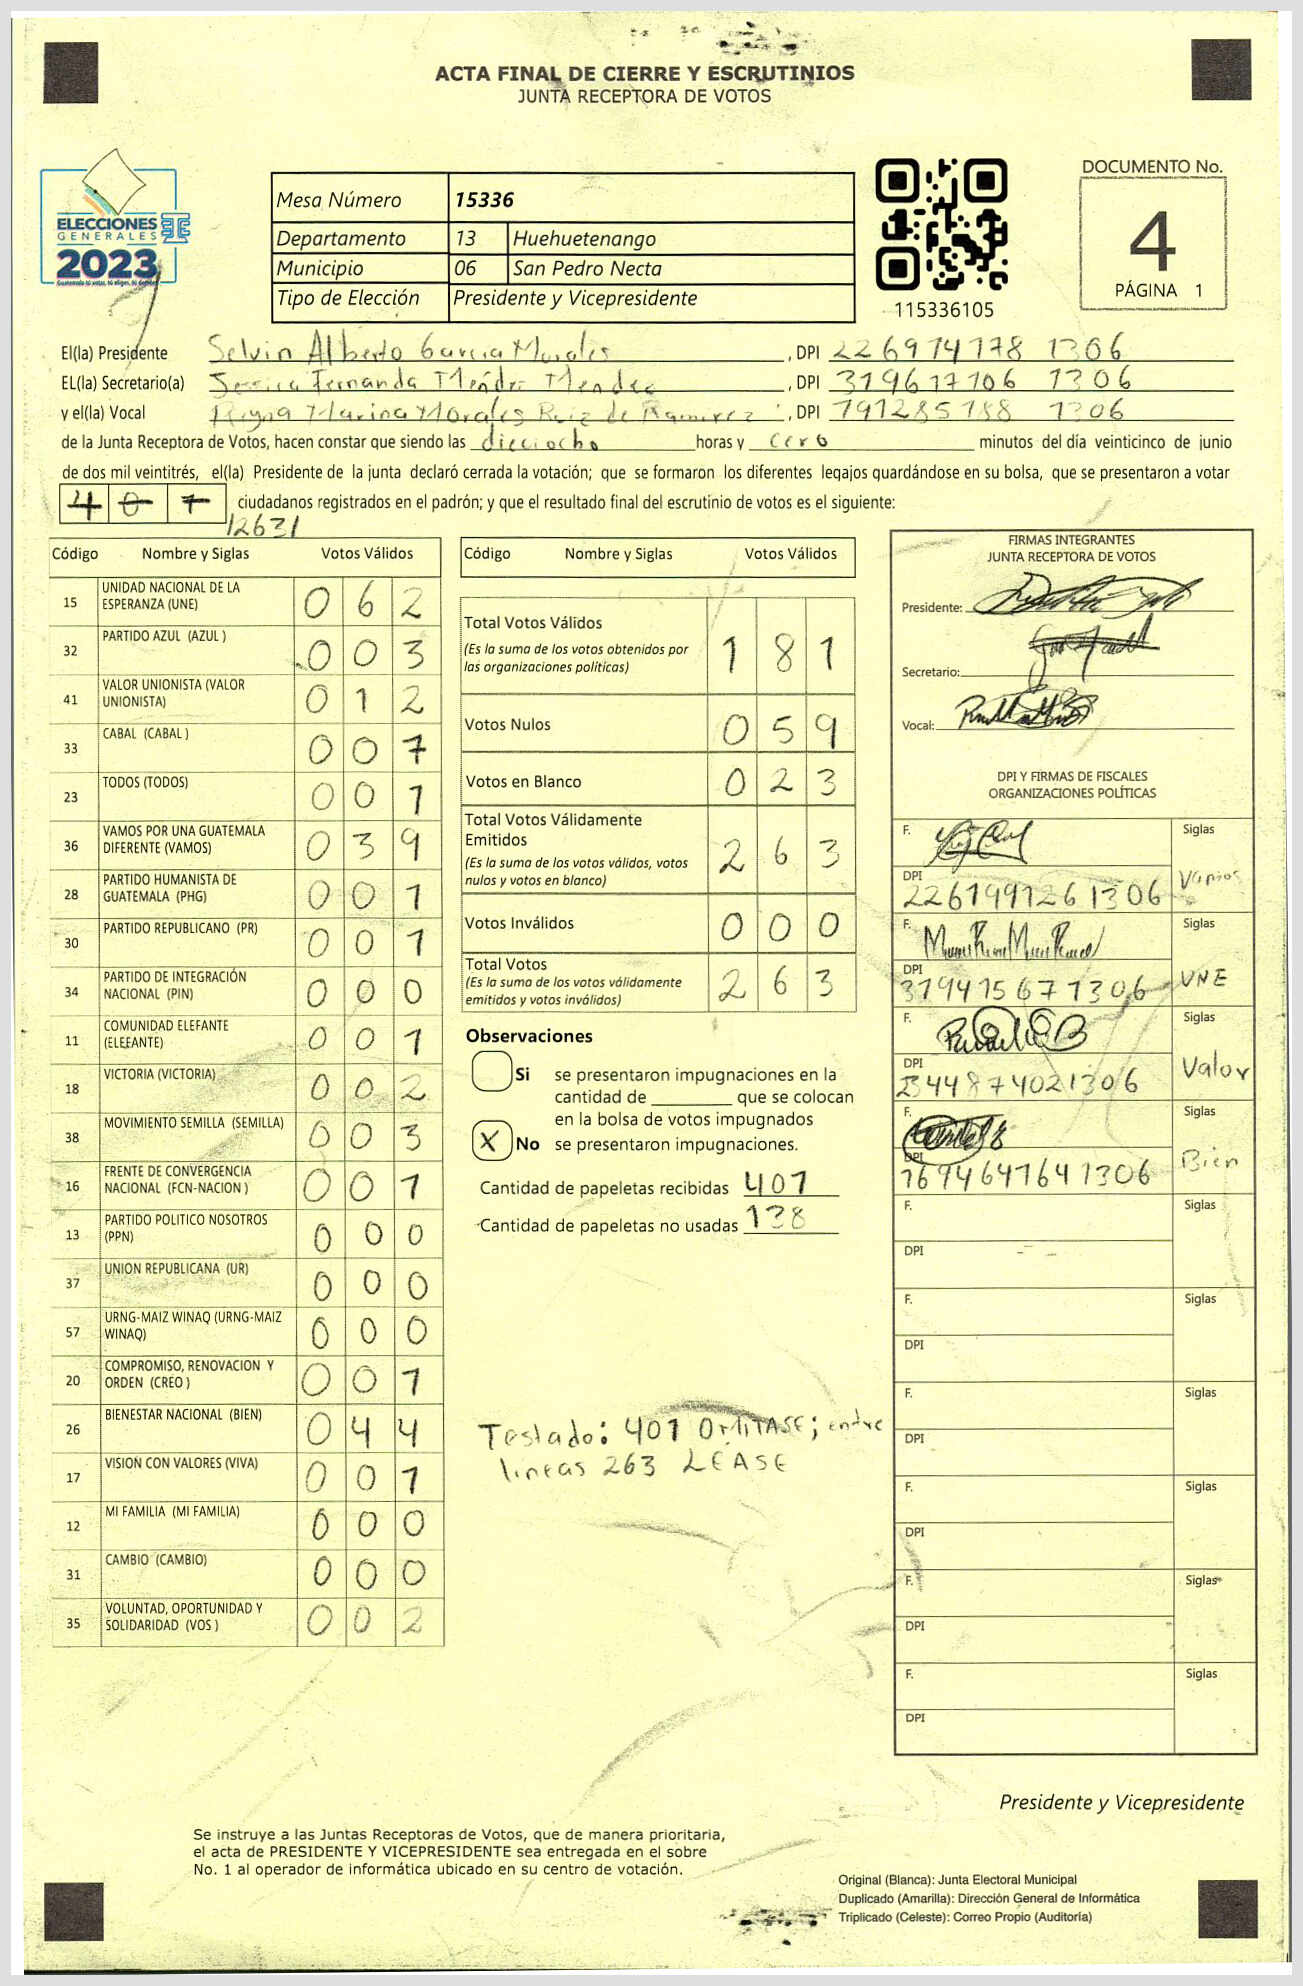 ACTA FINAL DE CIERRE Y ESCRUTINIOS
JUNTA RECEPTORA DE VOTOS
ELECCIONES
GENERALES
2023
Mesa Número 15336
Departamento 13 Huehuetenango
Municipio 06 San Pedro Necta
Tipo de Elección Presidente y Vicepresidente
115336105
DOCUMENTO No.
4
PÁGINA 1
El(la) Presidente Selvin Alberto Garcia Morales, DPI 226974778 1306
EL(la) Secretario(a) Jessica Fernanda Mendez Mendez, DPI 319617706 1306
y el(la) Vocal Reyna Marina Morales Ruiz de Ramirez, DPI 791285188 1306
de la Junta Receptora de Votos, hacen constar que siendo las dieciocho horas y cero minutos del día veinticinco de junio
de dos mil veintitrés, el(la) Presidente de la junta declaró cerrada la votación; que se formaron los diferentes legajos guardándose en su bolsa, que se presentaron a votar
4 0 7 ciudadanos registrados en el padrón; y que el resultado final del escrutinio de votos es el siguiente:
12631
Código Nombre y Siglas Votos Válidos
15 UNIDAD NACIONAL DE LA ESPERANZA (UNE) 0 6 2
32 PARTIDO AZUL (AZUL ) 0 0 3
41 VALOR UNIONISTA (VALOR UNIONISTA) 0 1 2
33 CABAL (CABAL ) 0 0 7
23 TODOS (TODOS) 0 0 1
36 VAMOS POR UNA GUATEMALA DIFERENTE (VAMOS) 0 3 9
28 PARTIDO HUMANISTA DE GUATEMALA (PHG) 0 0 1
30 PARTIDO REPUBLICANO (PR) 0 0 1
34 PARTIDO DE INTEGRACIÓN NACIONAL (PIN) 0 0 0
11 COMUNIDAD ELEFANTE (ELEFANTE) 0 0 1
18 VICTORIA (VICTORIA) 0 0 2
38 MOVIMIENTO SEMILLA (SEMILLA) 0 0 3
16 FRENTE DE CONVERGENCIA NACIONAL (FCN-NACION ) 0 0 1
13 PARTIDO POLITICO NOSOTROS (PPN) 0 0 0
37 UNION REPUBLICANA (UR) 0 0 0
57 URNG-MAIZ WINAQ (URNG-MAIZ WINAQ) 0 0 0
20 COMPROMISO, RENOVACION Y ORDEN (CREO ) 0 0 1
26 BIENESTAR NACIONAL (BIEN) 0 4 4
17 VISION CON VALORES (VIVA) 0 0 1
12 MI FAMILIA (MI FAMILIA) 0 0 0
31 CAMBIO (CAMBIO) 0 0 0
35 VOLUNTAD, OPORTUNIDAD Y SOLIDARIDAD (VOS ) 0 0 2
Código Nombre y Siglas Votos Válidos
Total Votos Válidos 1 8 1
(Es la suma de los votos obtenidos por
las organizaciones políticas)
Votos Nulos 0 5 9
Votos en Blanco 0 2 3
Total Votos Válidamente
Emitidos 2 6 3
(Es la suma de los votos válidos, votos
nulos y votos en blanco)
Votos Inválidos 0 0 0
Total Votos 2 6 3
(Es la suma de los votos válidamente
emitidos y votos inválidos)
Observaciones
Si se presentaron impugnaciones en la
cantidad de ________ que se colocan
en la bolsa de votos impugnados
X No se presentaron impugnaciones.
Cantidad de papeletas recibidas 401
Cantidad de papeletas no usadas 138
Testado: 401 OMITASE; entre
lineas 263 LEASE
FIRMAS INTEGRANTES
JUNTA RECEPTORA DE VOTOS
Presidente:
Secretario:
Vocal:
DPI Y FIRMAS DE FISCALES
ORGANIZACIONES POLÍTICAS
F. Siglas
DPI 226199126 1306 Vamos
F. Siglas
DPI 319415677306 UNE
F. Siglas
DPI 2344874021306 Valor
F. Siglas
DPI 1694641641306 Bien
F. Siglas
DPI
F. Siglas
DPI
F. Siglas
DPI
F. Siglas
DPI
F. Siglas
DPI
F. Siglas
DPI
Presidente y Vicepresidente
Se instruye a las Juntas Receptoras de Votos, que de manera prioritaria,
el acta de PRESIDENTE Y VICEPRESIDENTE sea entregada en el sobre
No. 1 al operador de informática ubicado en su centro de votación.
Original (Blanca): Junta Electoral Municipal
Duplicado (Amarilla): Dirección General de Informática
Triplicado (Celeste): Correo Propio (Auditoría)